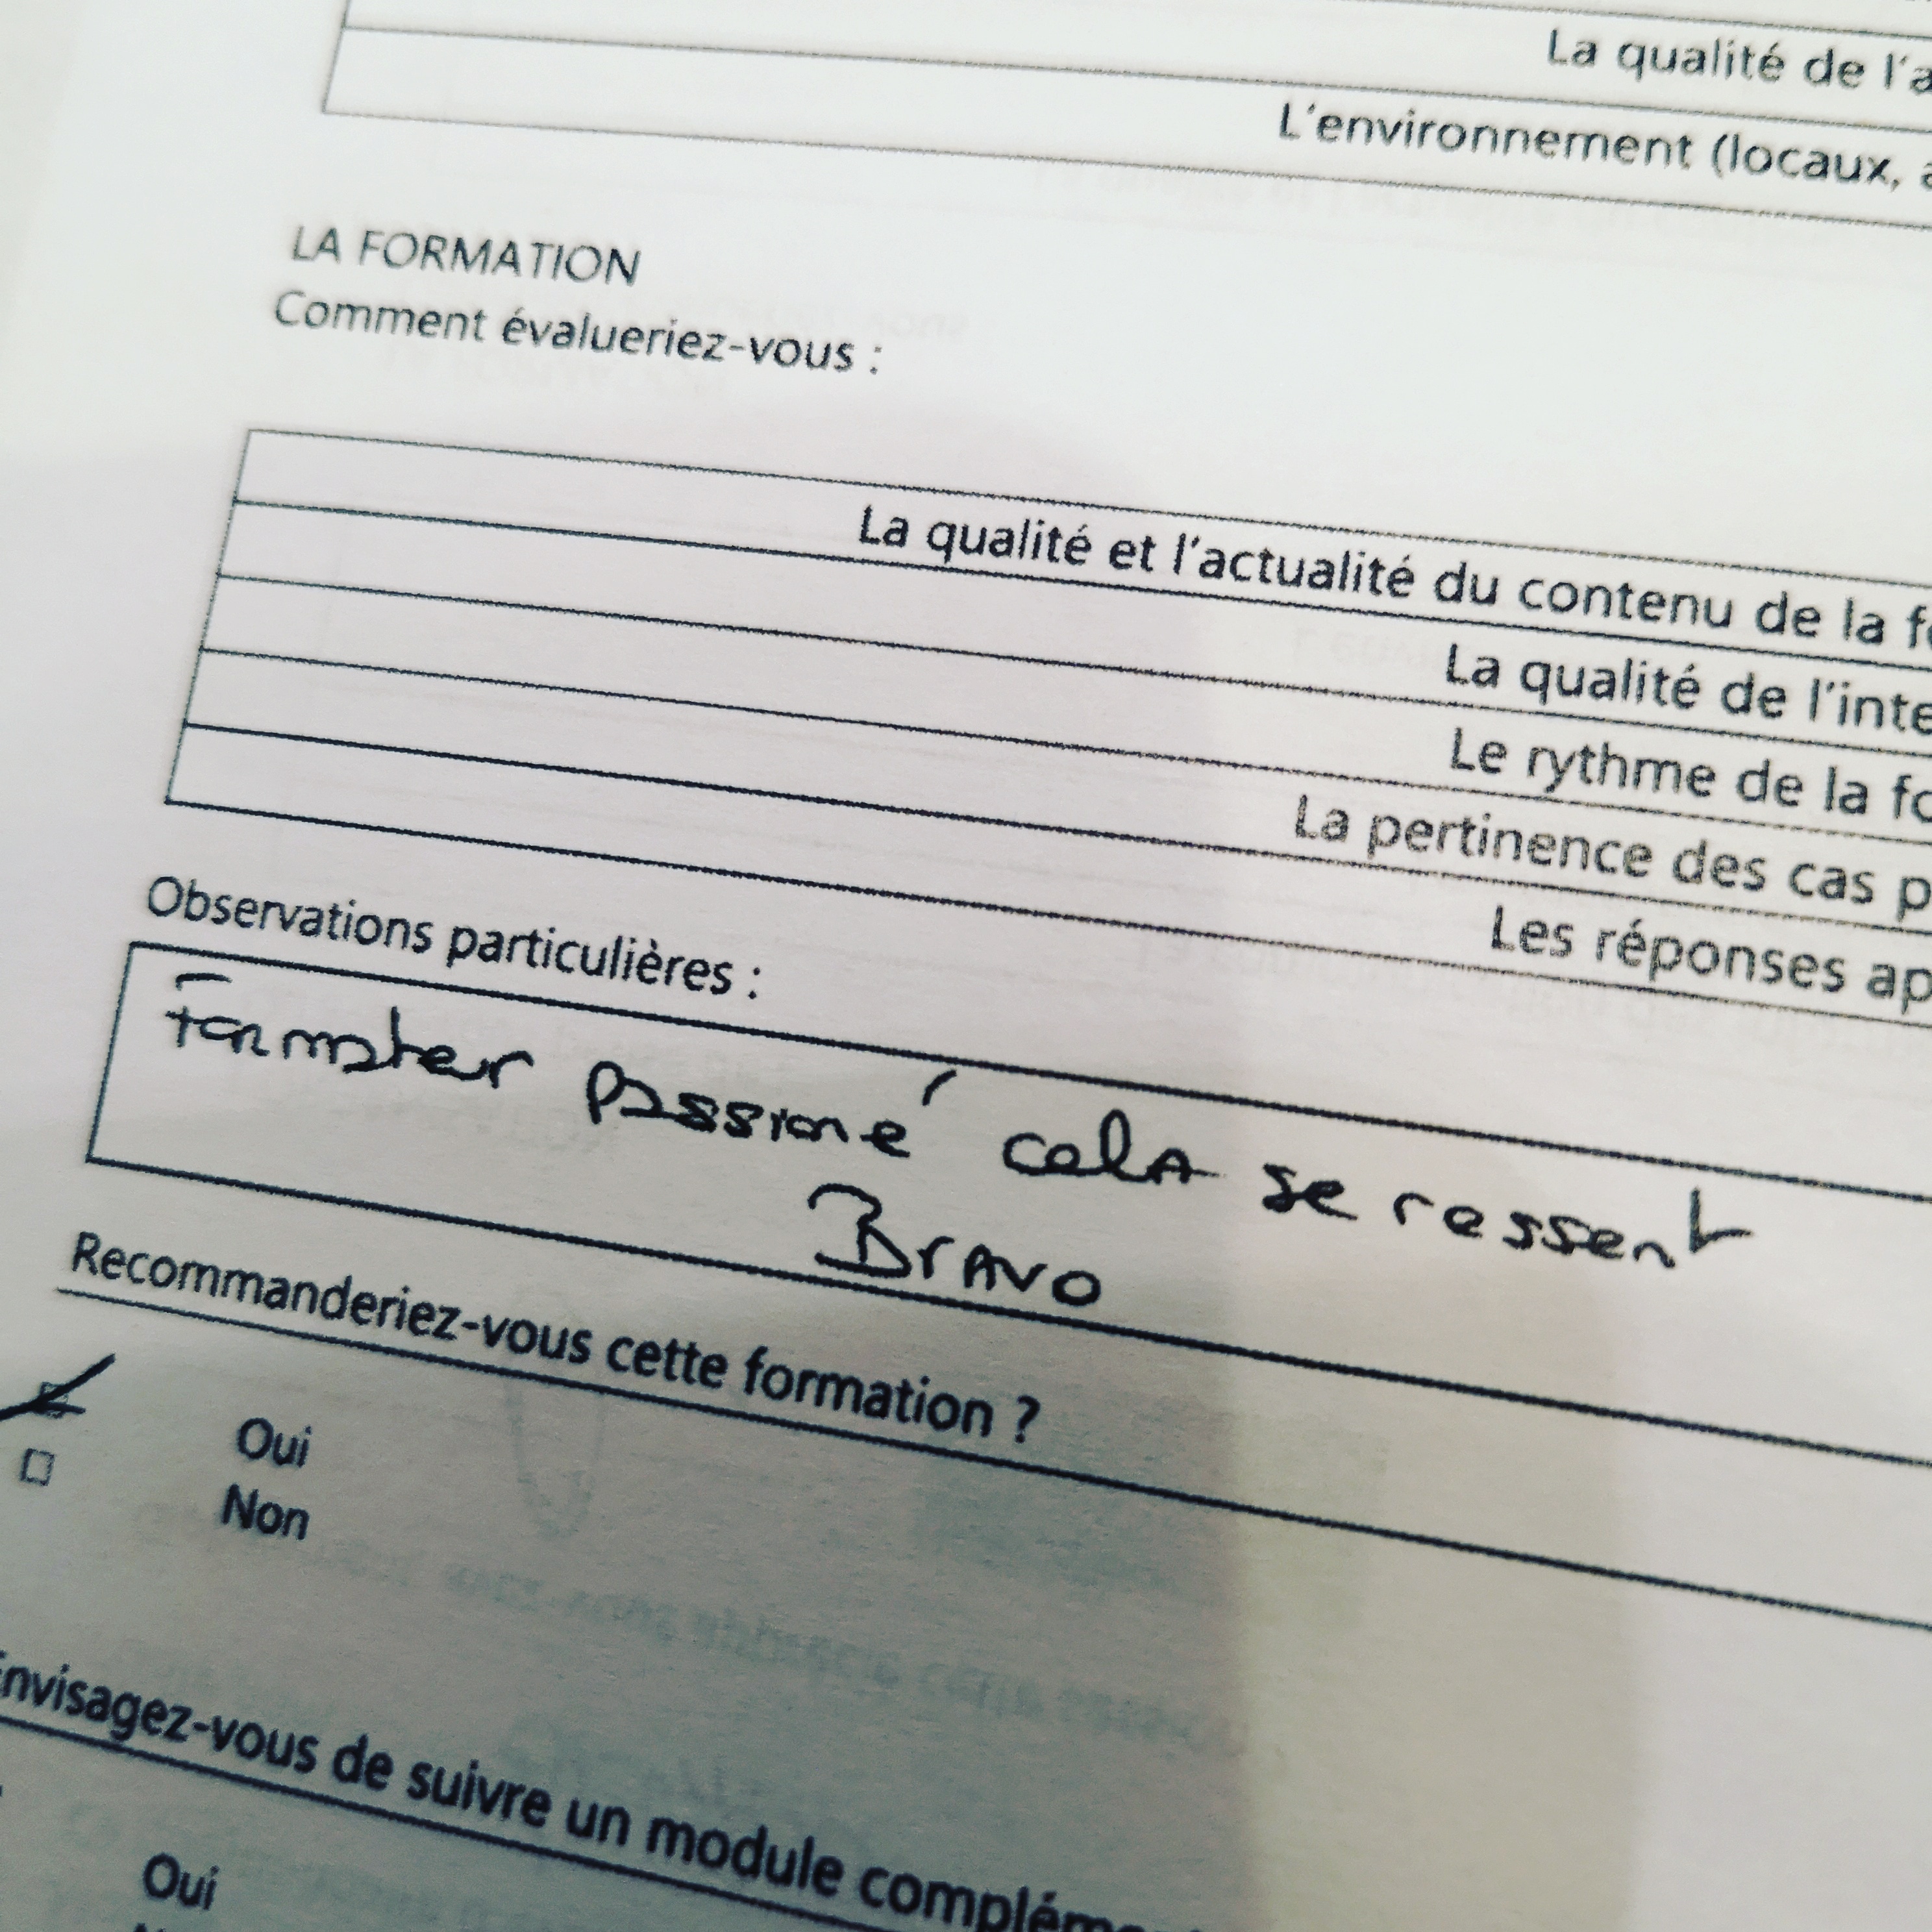 La qualité de l'a
L'environnement (locaux, a
LA FORMATION
Comment évalueriez-vous :
La qualité et l'actualité du contenu de la fo
La qualité de l'inte
Le rythme de la fo
La pertinence des cas p
Les réponses ap
Observations particulières :
Formateur passioné cela se ressent
Bravo
Recommanderiez-vous cette formation ?
Oui
Non
Envisagez-vous de suivre un module complément
Oui